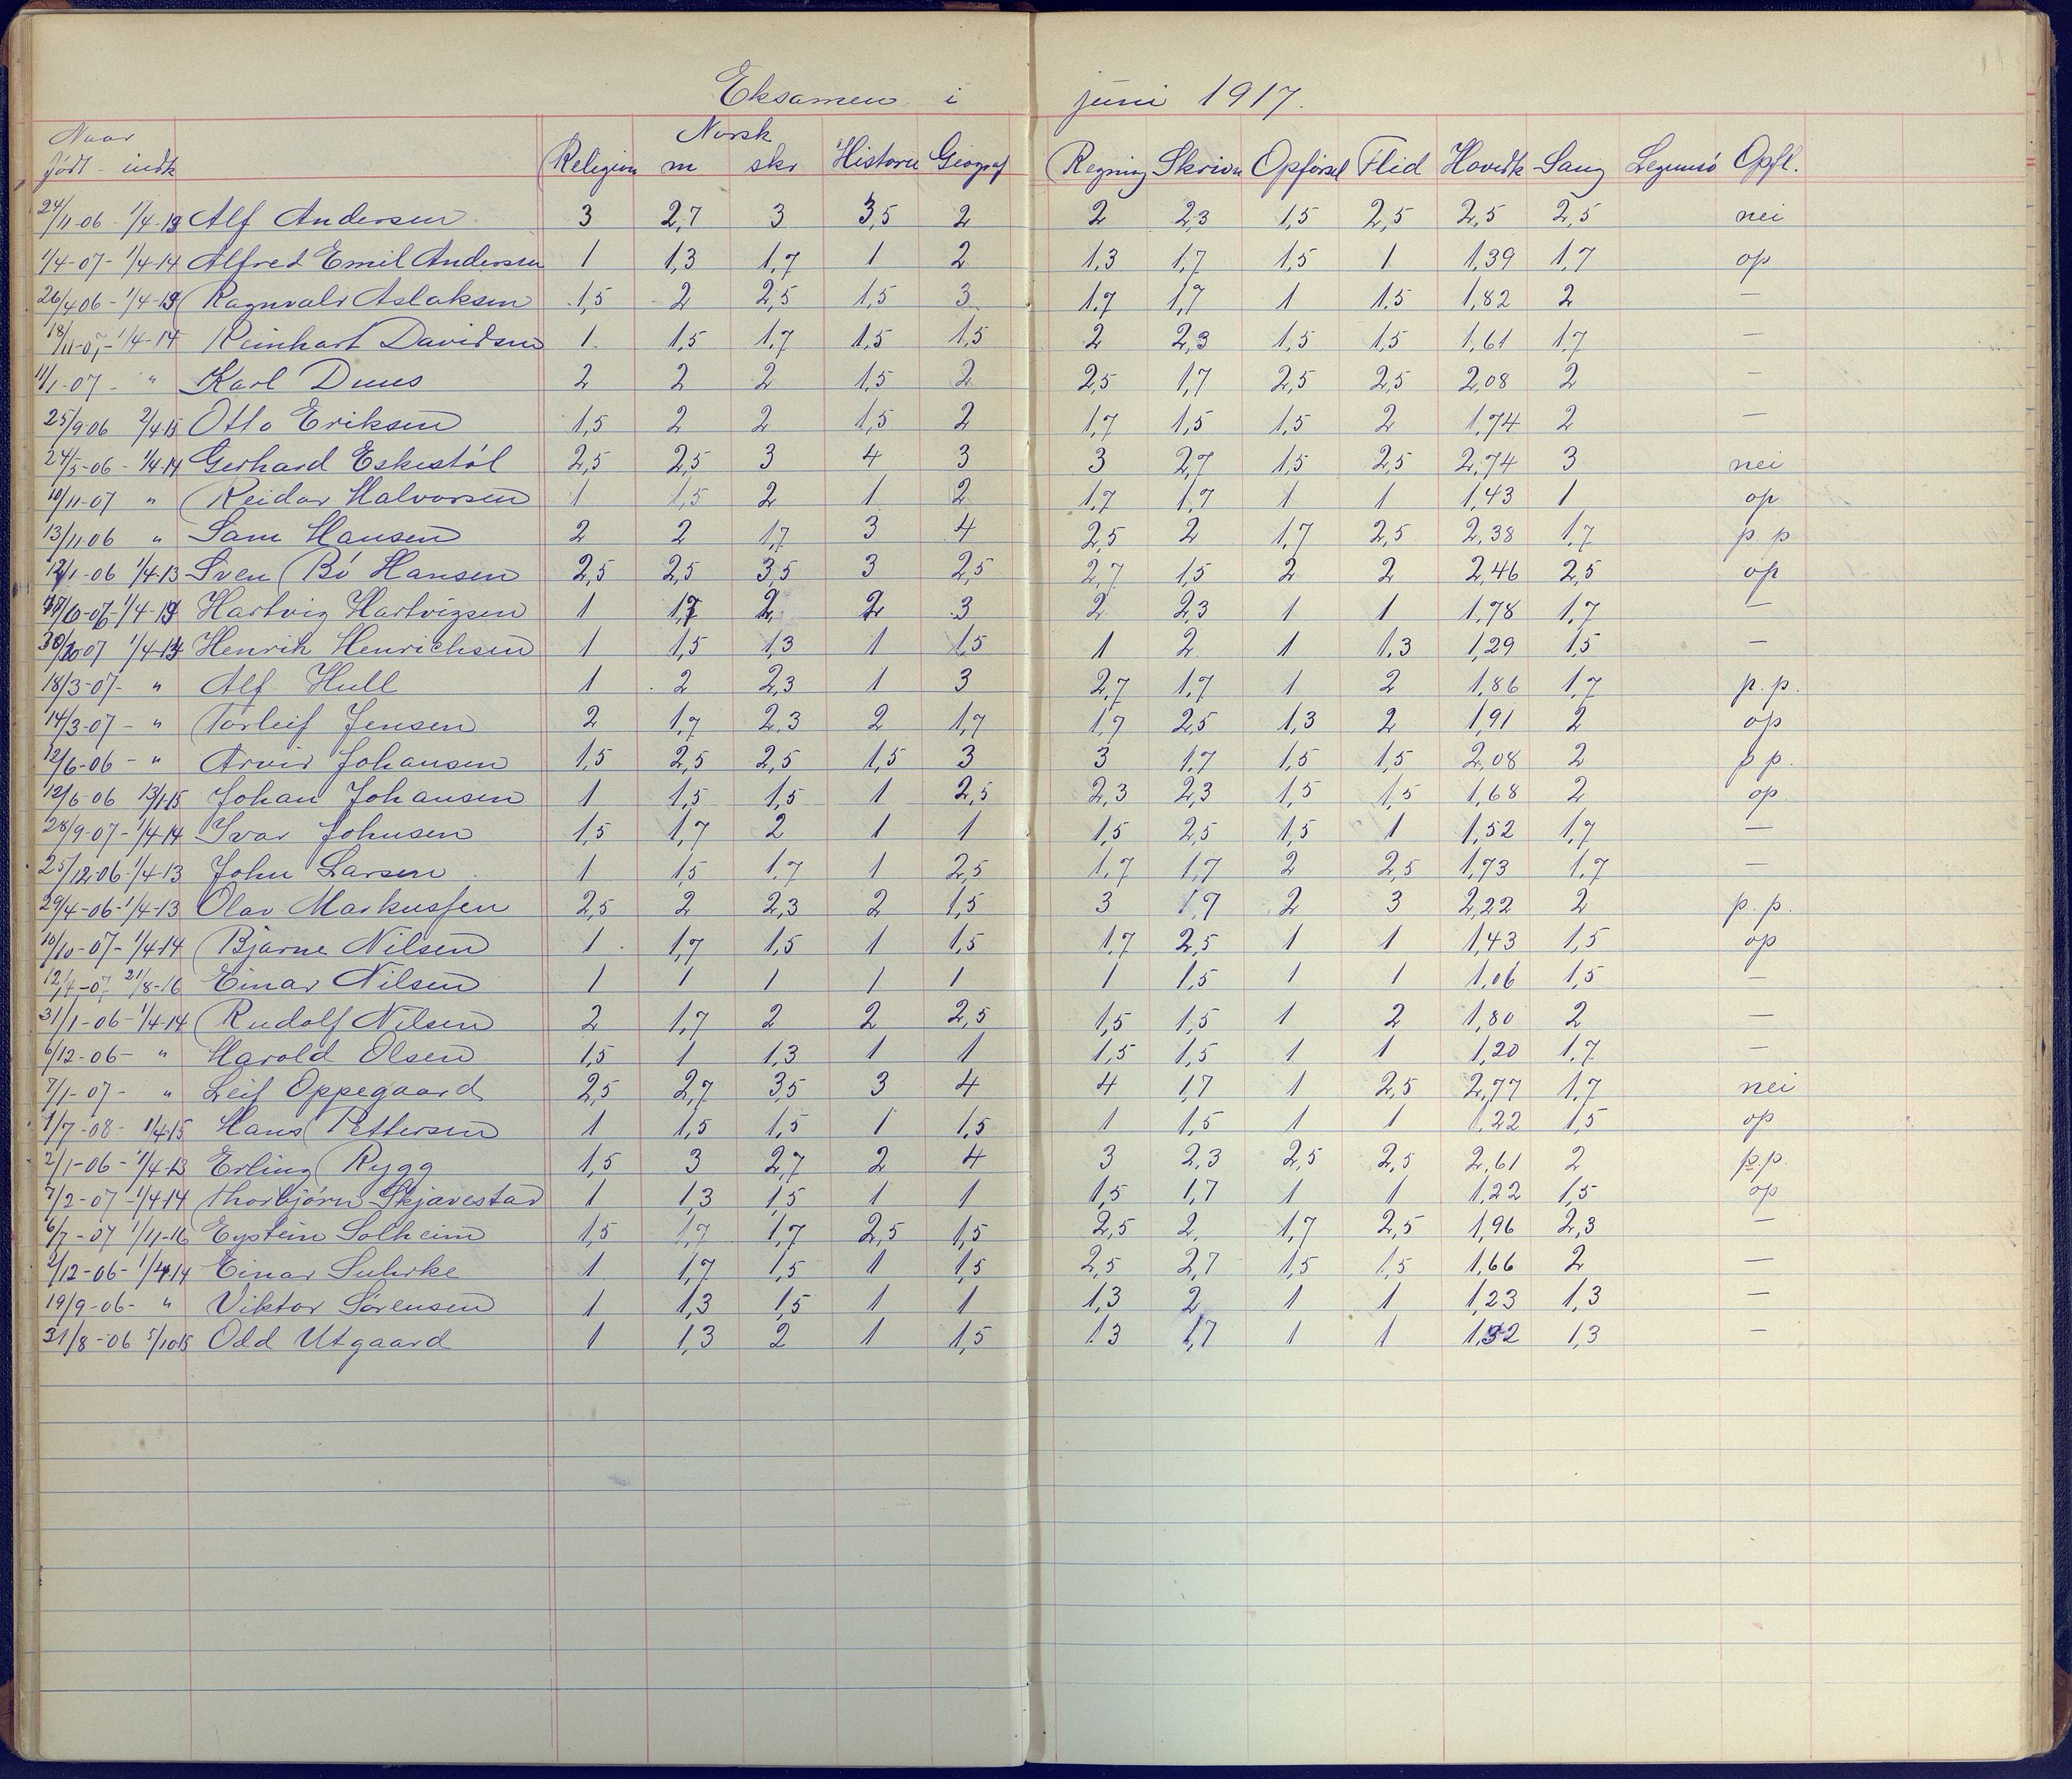 Eksamen i juni 1917.
Naar Norsk
født - indk Religion m skr Historie Geograf Regning Skrivn Opførsel Flid Hovedk Sang Legemsö Opfl.
24/11-06 - 1/4-13 Alf Andersen 3 2,7 3 3,5 2 2 2,3 1,5 2,5 2,5 2,5 nei
1/4-07 - 1/4-14 Alfred Emil Andersen 1 1,3 1,7 1 2 1,3 1,7 1,5 1 1,39 1,7 op
26/4 06 - 1/4-13 Ragnvald Aslaksen 1,5 2 2,5 1,5 3 1,7 1,7 1 1,5 1,82 2 —
18/11-07 - 1/4-14 Reinhart Davidsen 1 1,5 1,7 1,5 1,5 2 2,3 1,5 1,5 1,61 1,7 —
11/1-07 - " Karl Duus 2 2 2 1,5 2 2,5 1,7 2,5 2,5 2,08 2 —
25/9-06 2/4-15 Otto Eriksen 1,5 2 2 1,5 2 1,7 1,5 1,5 2 1,74 2 —
24/5-06 - 1/4-14 Gerhard Eskestøl 2,5 2,5 3 4 3 3 2,7 1,5 2,5 2,74 3 nei
10/11-07 " Reidar Halvorsen 1 1,5 2 1 2 1,7 1,7 1 1 1,43 1 op
13/11-06 " Sam Hansen 2 2 1,7 3 4 2,5 2 1,7 2,5 2,38 1,7 p. p
12/1-06 1/4-13 Sven Bö Hansen 2,5 2,5 3,5 3 2,5 2,7 1,5 2 2 2,46 2,5 op
/10-06 - 1/4-14 Hartvig Hartvigsen 1 1,7 2 2 3 2 2,3 1 1 1,78 1,7 —
07 1/4-14 Henrik Henrichsen 1 1,5 1,3 1 1,5 1 2 1 1,3 1,29 1,5 —
18/3-07- " Alf Hull 1 2 2,3 1 3 2,7 1,7 1 2 1,86 1,7 p. p.
14/3-07 - " Torleif Jensen 2 1,7 2,3 2 1,7 1,7 2,5 1,3 2 1,91 2 op
12/6-06 - " Arvid Johansen 1,5 2,5 2,5 1,5 3 3 1,7 1,5 1,5 2,08 2 p p.
12/6-06 13/1-15 Johan Johansen 1 1,5 1,5 1 2,5 2,3 2,3 1,5 1,5 1,68 2 op
28/9-07 - 1/4-14 Ivar Johnsen 1,5 1,7 2 1 1 1,5 2,5 1,5 1 1,52 1,7 —
25/12-06 - 1/4-13 John Larsen 1 1,5 1,7 1 2,5 1,7 1,7 2 2,5 1,73 1,7 —
29/4-06 - 1/4-13 Olav Markussen 2,5 2 2,3 2 1,5 3 1,7 2 3 2,22 2 p. p.
10/10-07 - 1/4-14 Bjarne Nilsen 1 1,7 1,5 1 1,5 1,7 2,5 1 1 1,43 1,5 op
12/4-07 21/8-16 Einar Nilsen 1 1 1 1 1 1 1,5 1 1 1,06 1,5 —
31/1-06 - 1/4-14 Rudolf Nilsen 2 1,7 2 2 2,5 1,5 1,5 1 2 1,80 2 —
6/12-06 - " Harold Olsen 1,5 1 1,3 1 1 1,5 1,5 1 1 1,20 1,7 —
7/1-07 - " Leif Oppegaard 2,5 2,7 3,5 3 4 4 1,7 1 2,5 2,77 1,7 nei
1/7-08 - 1/4-15 Hans Pettersen 1 1,5 1,5 1 1,5 1 1,5 1 1 1,22 1,5 op
2/1-06 - 1/4-13 Erling Rygg 1,5 3 2,7 2 4 3 2,3 2,5 2,5 2,61 2 p.p.
7/2-07 - 1/4-14 Thorbjørn Skjavestad 1 1,3 1,5 1 1 1,5 1,7 1 1 1,22 1,5 op
6/7-07 1/11-16 Eystein Solheim 1,5 1,7 1,7 2,5 1,5 2,5 2 1,7 2,5 1,96 2,3 —
2/12-06 - 1/4-14 Einar Suhrke 1 1,7 1,5 1 1,5 2,5 2,7 1,5 1,5 1,66 2 —
19/9-06 - " Viktor Sørensen 1 1,3 1,5 1 1 1,3 2 1 1 1,23 1,3 —
31/8-06 5/10-15 Odd Utgaard 1 1,3 2 1 1,5 1 3 1,7 1 1 1,32 1,3 —